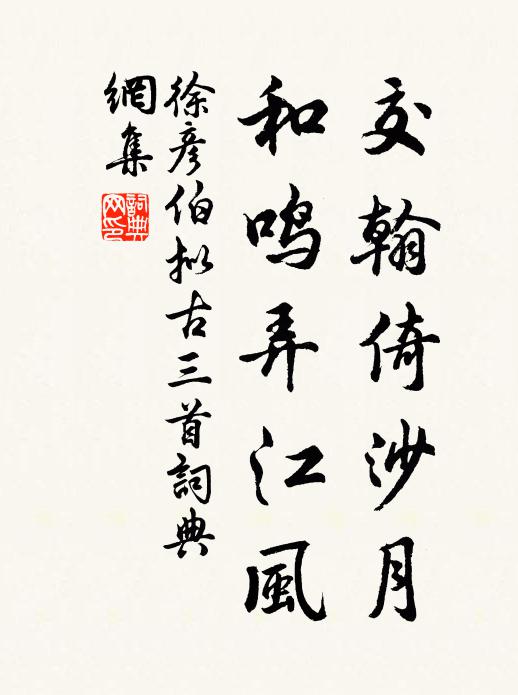 交翰倚沙月
和鸣弄江風
徐彦伯拟古三首詞典
網集
詞典
网印